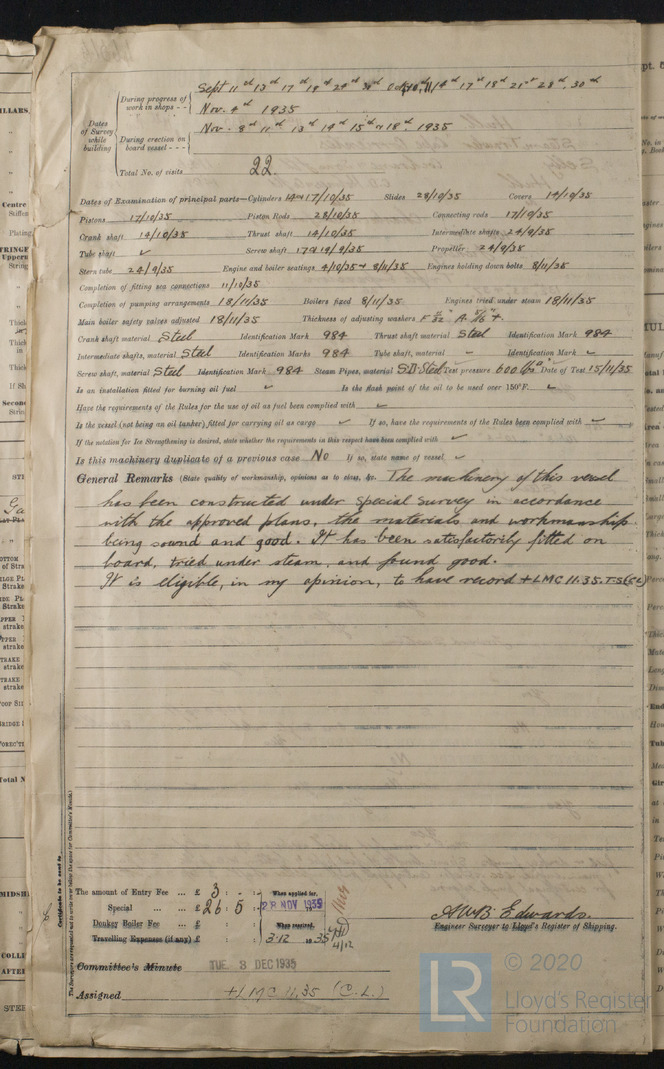 Dates of Survey while building
During progress of work in shops - - Sept 11th 13th 17th 19th 24th 14th 17th 18th 21st 28th, 30th
Nov. 4th 1935
During erection on board vessel - - - Nov. 8th 11th 13th 14th 15th & 18th, 1935
Total No. of visits 22.
Dates of Examination of principal parts—Cylinders 14 & 17/10/35 Slides 28/10/35 Covers 14/10/35
Pistons 17/10/35 Piston Rods 28/10/35 Connecting rods 17/10/35
Crank shaft 14/10/35 Thrust shaft 14/10/35 Intermediate shafts 24/9/35
Tube shaft ✓ Screw shaft 17 & 19/9/35 Propeller 24/9/35
Stern tube 24/9/35 Engine and boiler seatings 4/10/35 & 8/11/35 Engines holding down bolts 8/11/35
Completion of fitting sea connections 11/10/35
Completion of pumping arrangements 18/11/35 Boilers fixed 8/11/35 Engines tried under steam 18/11/35
Main boiler safety valves adjusted 18/11/35 Thickness of adjusting washers
Crank shaft material Steel Identification Mark 984 Thrust shaft material Steel Identification Mark 984
Intermediate shafts, material Steel Identification Marks 984 Tube shaft, material ✓ Identification Mark ✓
Screw shaft, material Steel Identification Mark 984 Steam Pipes, material S.D. Steel Test pressure 600 lbs Date of Test 15/11/35
Is an installation fitted for burning oil fuel ✓ Is the flash point of the oil to be used over 150°F. ✓
Have the requirements of the Rules for the use of oil as fuel been complied with ✓
Is the vessel (not being an oil tanker), fitted for carrying oil as cargo ✓ If so, have the requirements of the Rules been complied with ✓
If the notation for Ice Strengthening is desired, state whether the requirements in this respect have been complied with ✓
Is this machinery duplicate of a previous case No If so, state name of vessel ✓
General Remarks (State quality of workmanship, opinions as to class, &c. The machinery of this vessel
has been constructed under special survey in accordance
with the approved plans, the materials and workmanship
being sound and good. It has been satisfactorily fitted on
board, tried under steam, and found good.
It is eligible, in my opinion, to have record +LMC 11.35. T.S(CL)
Certificate to be sent to
The amount of Entry Fee ... £ 3 : - : When applied for,
Special ... ... £ 26 : 5 : 28 NOV 1935
Donkey Boiler Fee ... £ : : When received,
Travelling Expenses (if any) £ : : 3.12 1935
4/12
A.W.B. Edwards.
Engineer Surveyor to Lloyd's Register of Shipping.
Committee's Minute TUE 3 DEC 1935
Assigned +LMC 11,35 (C.L.)
© 2020
LR
Lloyd's Register
Foundation